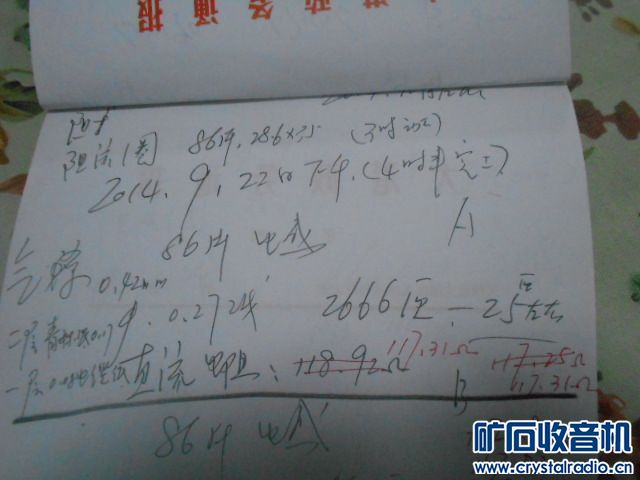 政务通报
阻流圈 86片,286×35 (3时动工)
2014.9.22日下午.(4时半完工)
86片 电感 A
气隙0.42mm
φ.0.27线 2666匝 — 25匝左右
二层青壳纸0.17
直流电阻: 118.92Ω 117.31Ω 117.25Ω
117.31Ω
B
86片 电感
矿石收音机
www.crystalradio.cn